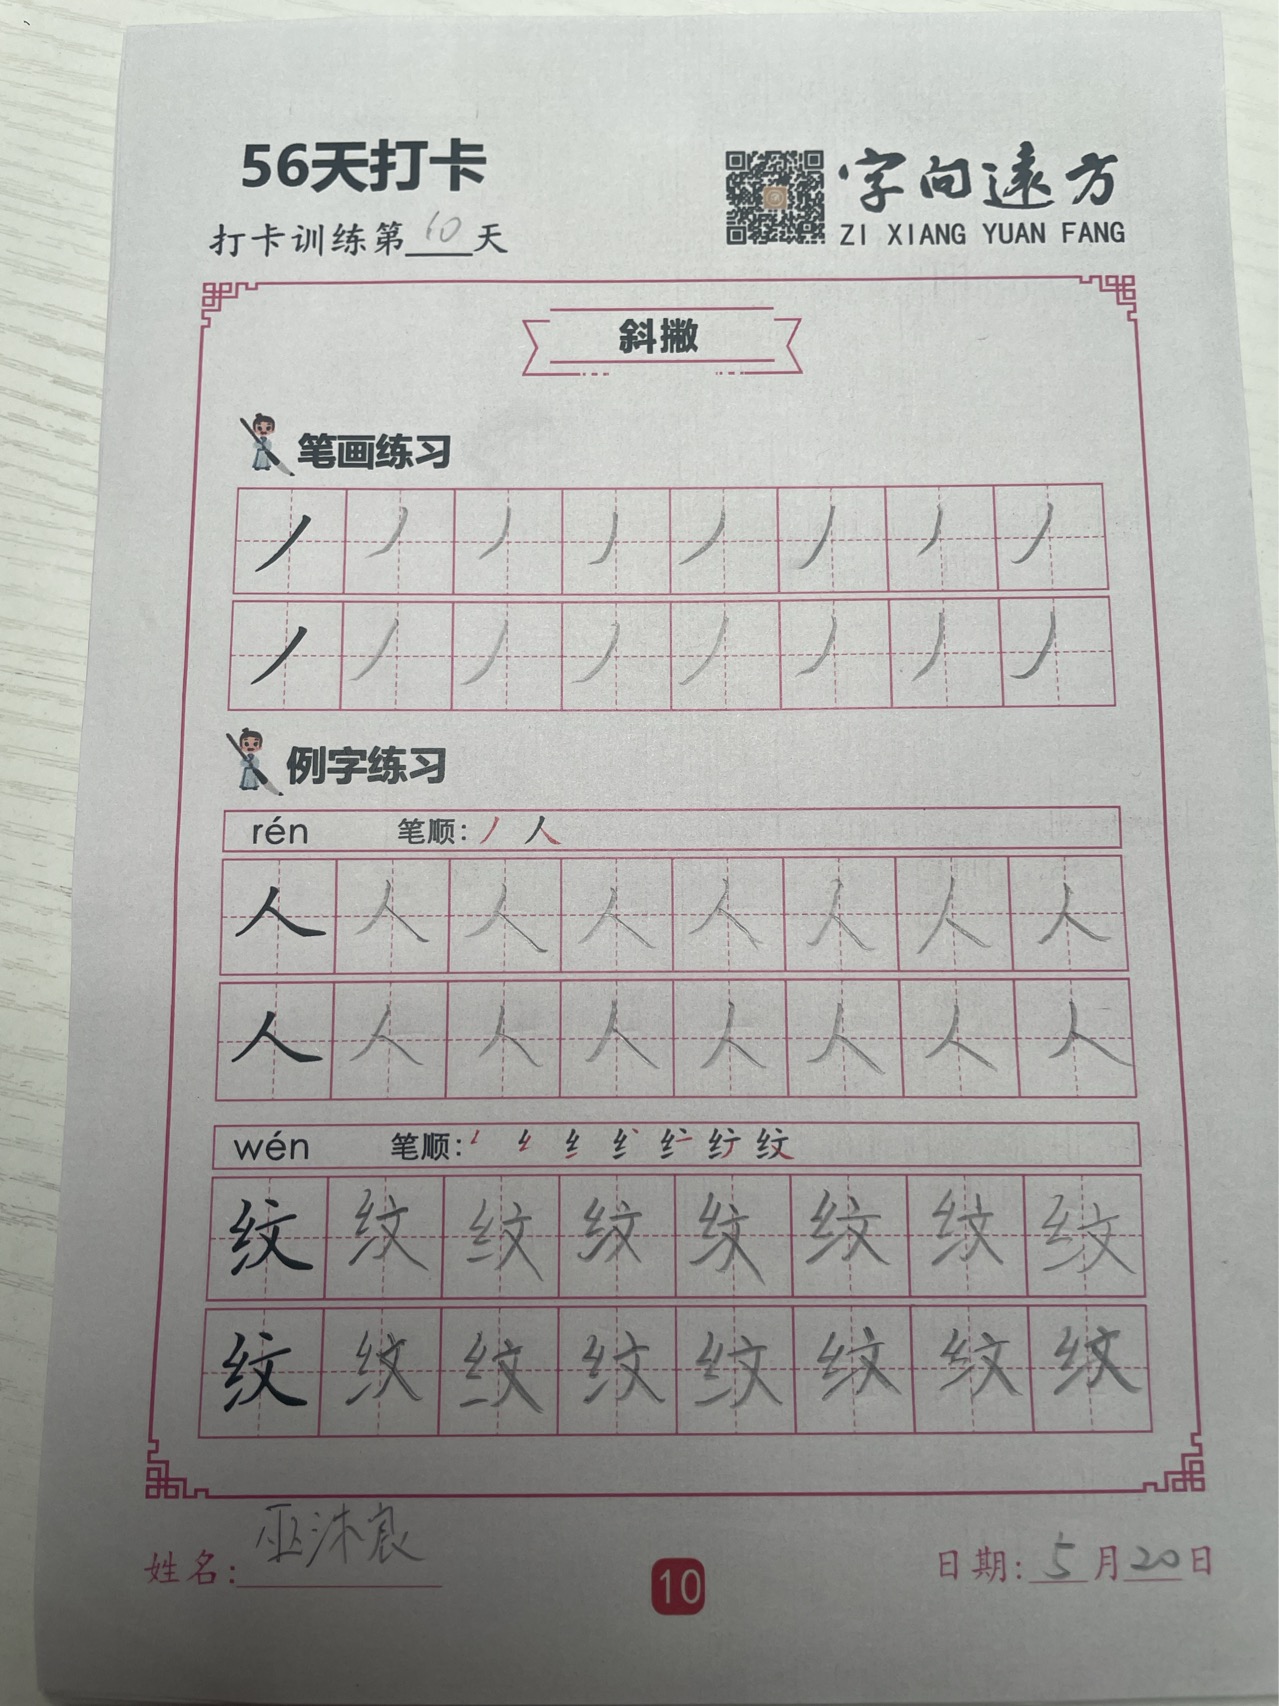 56天打卡
打卡训练第10天
字向遠方
ZI XIANG YUAN FANG
斜撇
笔画练习
丿丿丿丿丿丿丿丿
丿丿丿丿丿丿丿丿
例字练习
rén 笔顺: 丿 人
人人人人人人人人
人人人人人人人人
wén 笔顺: 纹
纹纹纹纹纹纹纹纹
纹纹纹纹纹纹纹纹
姓名: 巫沐宸
10
日期: 5月20日